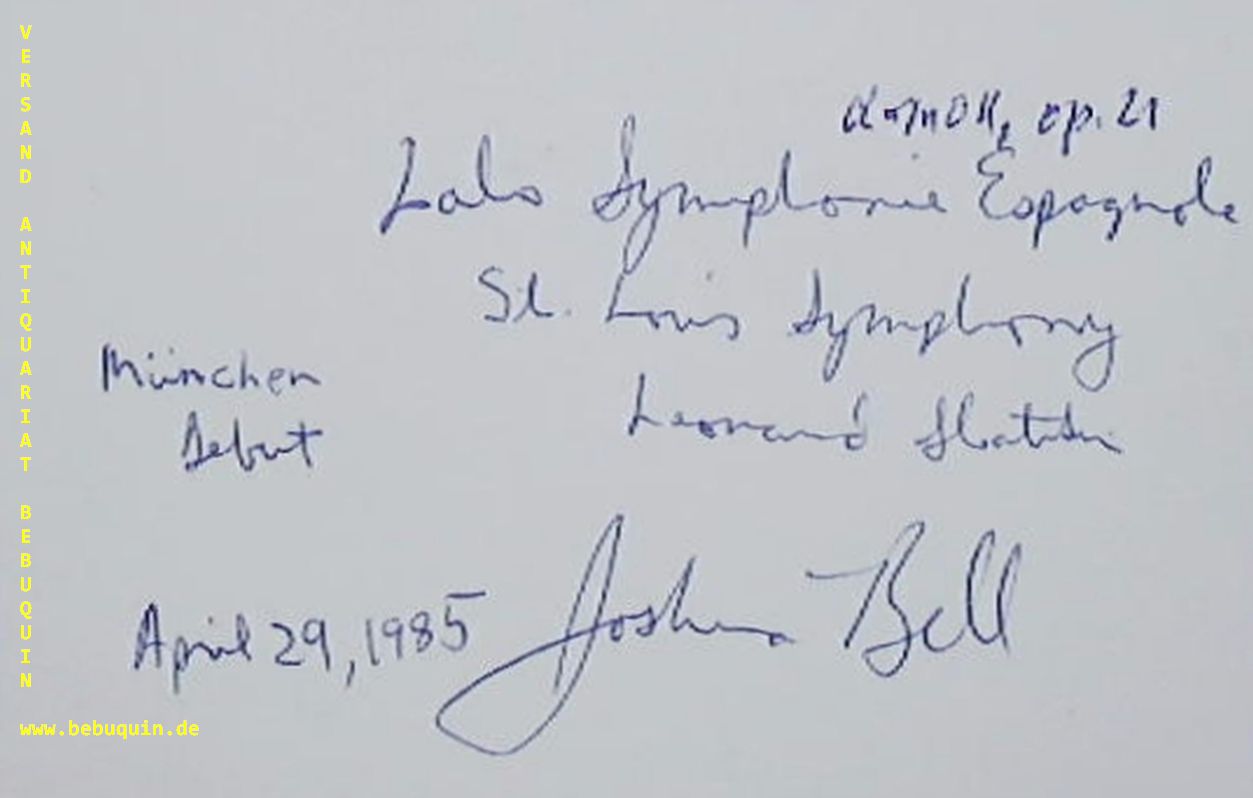 d-moll, op. 21
Lalo Symphonie Espagnole
St. Louis Symphony
München
Leonard Slatkin
Debut
April 29, 1985 Joshua Bell
VERSAND ANTIQUARIAT BEBUQUIN
www.bebuquin.de